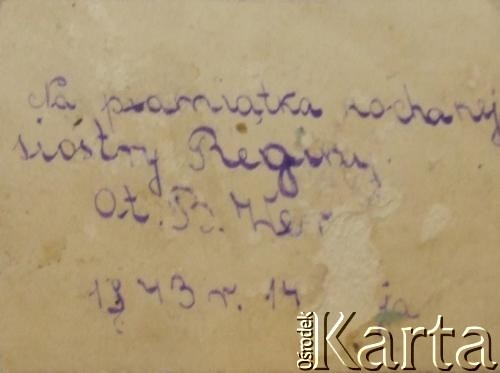 Na pamiątka kochanej
siostry Reginy.
Od. B.
1943 r. 14
Ośrodek
Karta